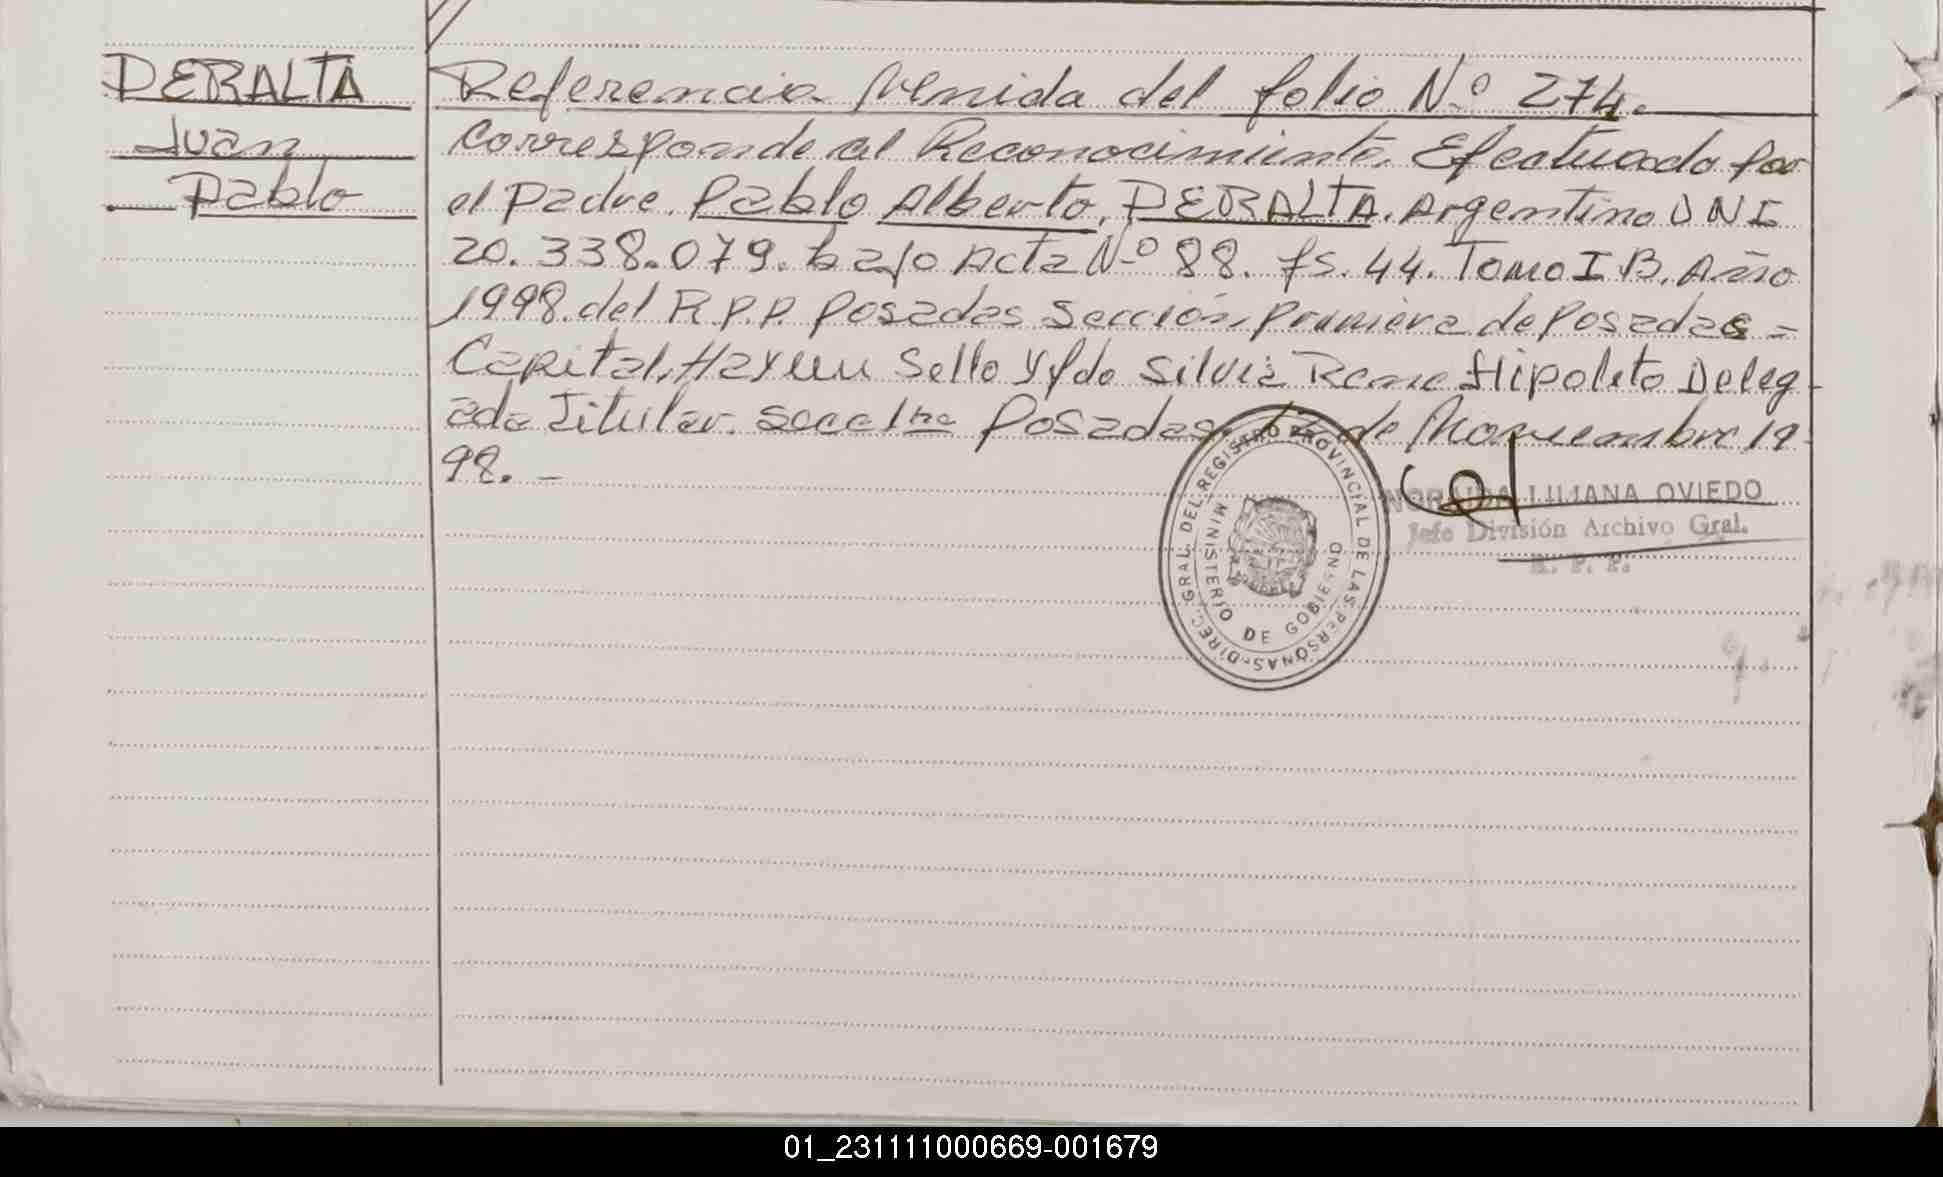 PERALTA
Juan
Pablo
Referencia Venida del folio Nº 274.
Corresponde al Reconocimiento. Efectuado por
el Padre. Pablo Alberto. PERALTA. Argentino DNI
20.338.079. bajo Acta Nº 88. fs. 44. Tomo I B. Año
1998. del R.P.P. Posadas Sección primera de Posadas =
Capital. Hay un Sello y fdo Silvia Rene Hipolito Deleg-
ada Titular. Secc 1ra Posadas de Noviembre 19
98. -
DIREC. GRAL. DEL REGISTRO PROVINCIAL DE LAS PERSONAS-
MINISTERIO DE GOBIERNO
NORAIDA LILIANA OVIEDO
Jefe División Archivo Gral.
R. P. P.
01_231111000669-001679